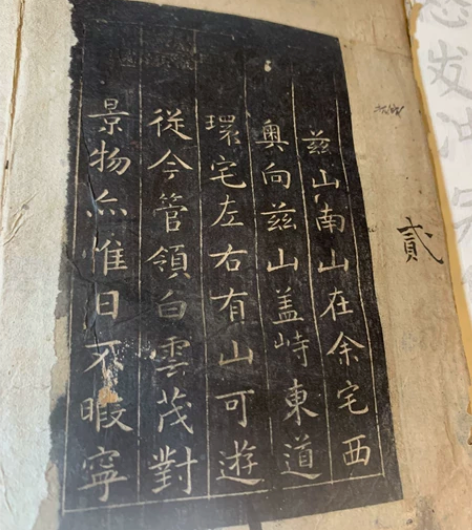 茲山南山在余宅西
奧向茲山盖峙東道
環宅左右有山可遊
從今管領白雲茂對
景物亦惟日不暇寧
貳